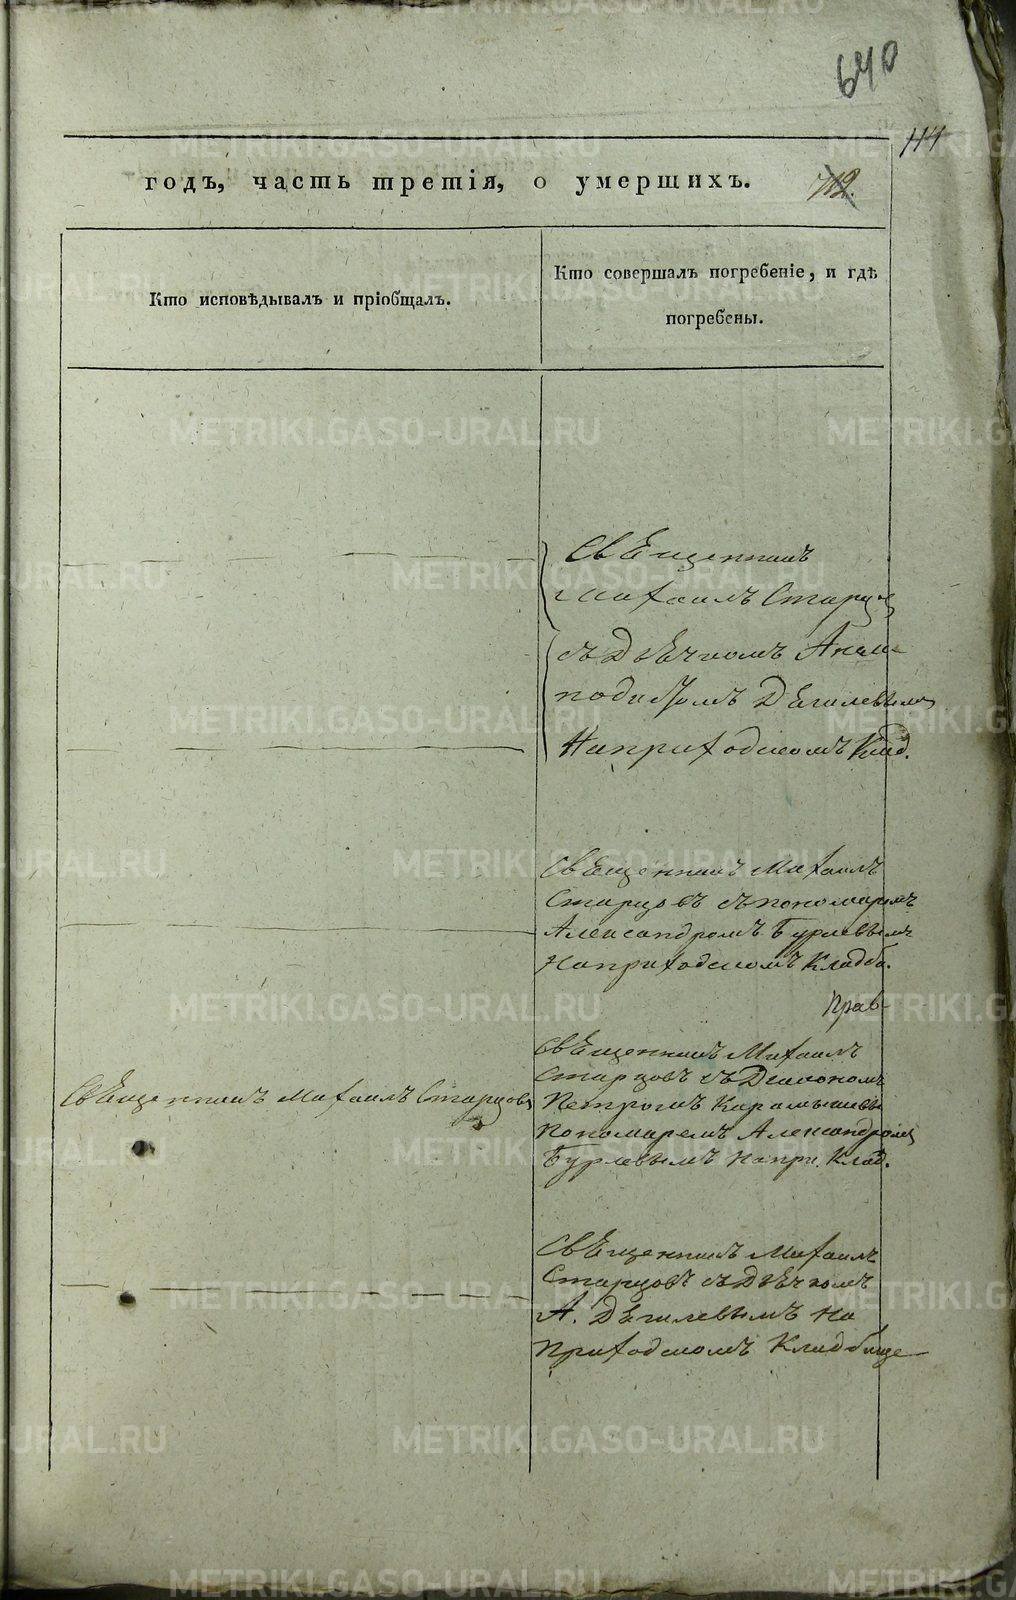 640
годъ, часть третія, о умершихъ.
Кто исповѣдывалъ и пріобщалъ.
Кто совершалъ погребеніе, и гдѣ
погребены.
Священникъ
Михаилъ Старцо
съ Дьячкомъ Ани
подистомъ Дѣгилевымъ
На приходскомъ Клад.
Священникъ Михаилъ
Старцовъ съ пономаремъ
Александромъ Бурлевымъ
На приходскомъ Кладби.
Священникъ Михаилъ Старцовъ
Священникъ Михаилъ
Старцовъ съ Діакономъ
Петромъ
Пономаремъ Александромъ
Бурлевымъ на при. Клад.
Священникъ Михаилъ
Старцовъ съ Дьячкомъ
А. Дѣгилевымъ на
приходскомъ Кладбище
METRIKI.GASO-URAL.RU